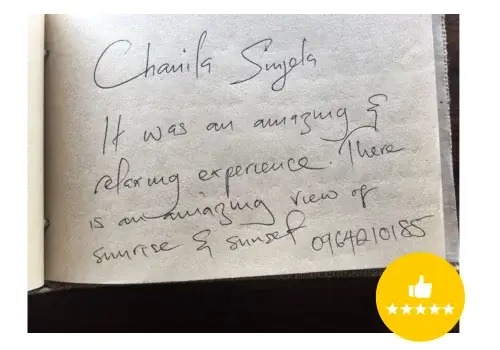 Chanila Sinyela
It was an amazing &
relaxing experience. There
is an amazing view of
sunrise & sunset 0964210185